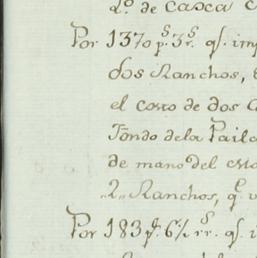 de casca
Por 1370 p.s 3 r.s q.e
dos Ranchos,
el costo de dos
Fondo dela Paila
de mano del
2 Ranchos, q.e
Por 183 p.s 6½ r.s q.e